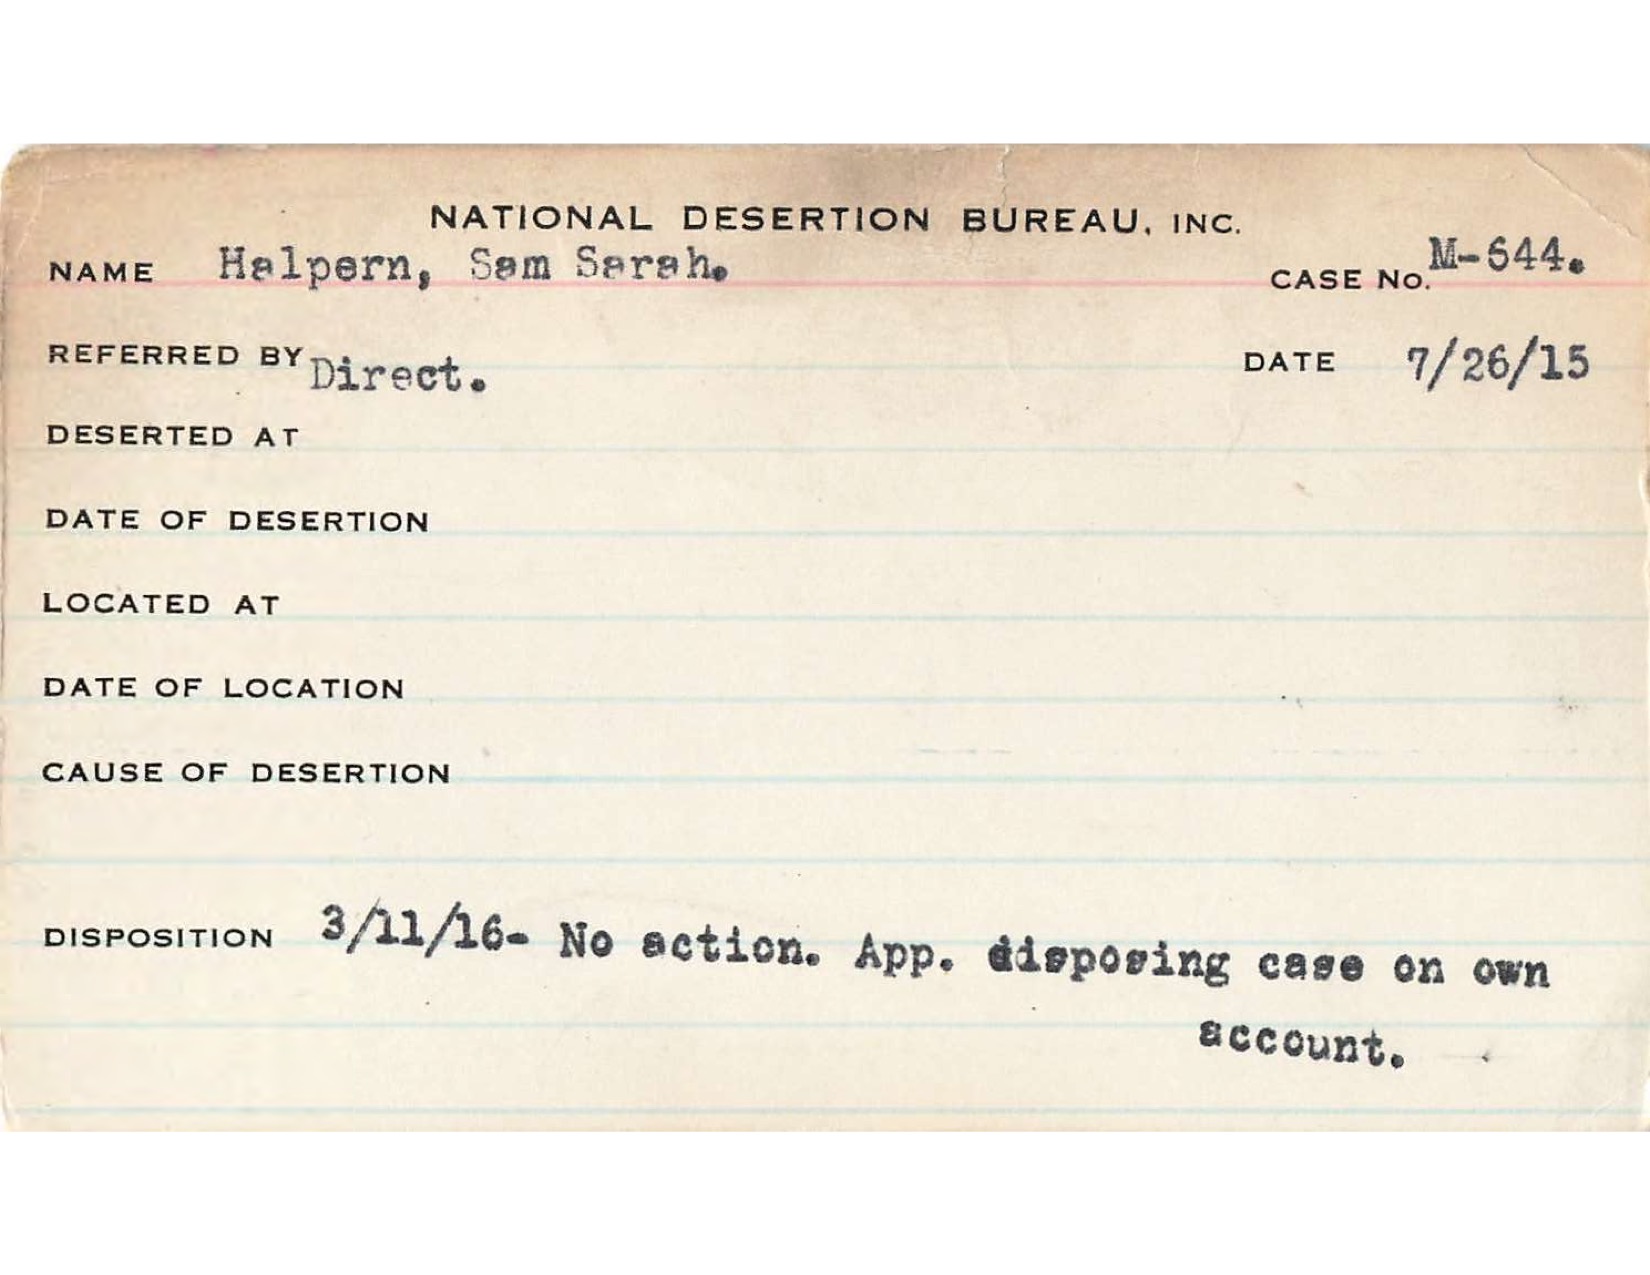 NATIONAL DESERTION BUREAU, INC.
NAME Halpern, Sam Sarah. CASE No. M-644.
REFERRED BY Direct. DATE 7/26/15
DESERTED AT
DATE OF DESERTION
LOCATED AT
DATE OF LOCATION
CAUSE OF DESERTION
DISPOSITION 3/11/16- No action. App. disposing case on own
account.